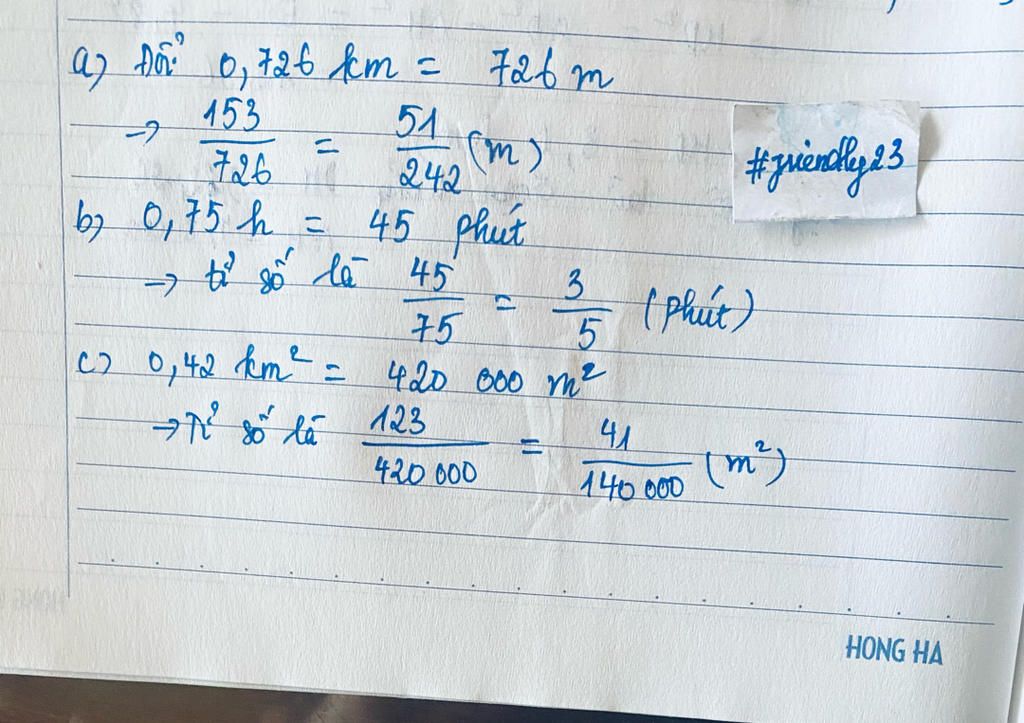 a) Đổi 0,726 km = 726 m
→ 153/726 = 51/242 (m)
#friendly23
b) 0,75 h = 45 phút
→ tỉ số là 45/75 = 3/5 (phút)
c) 0,42 km² = 420 000 m²
→ Tỉ số là 123/420 000 = 41/140 000 (m²)
HONG HA